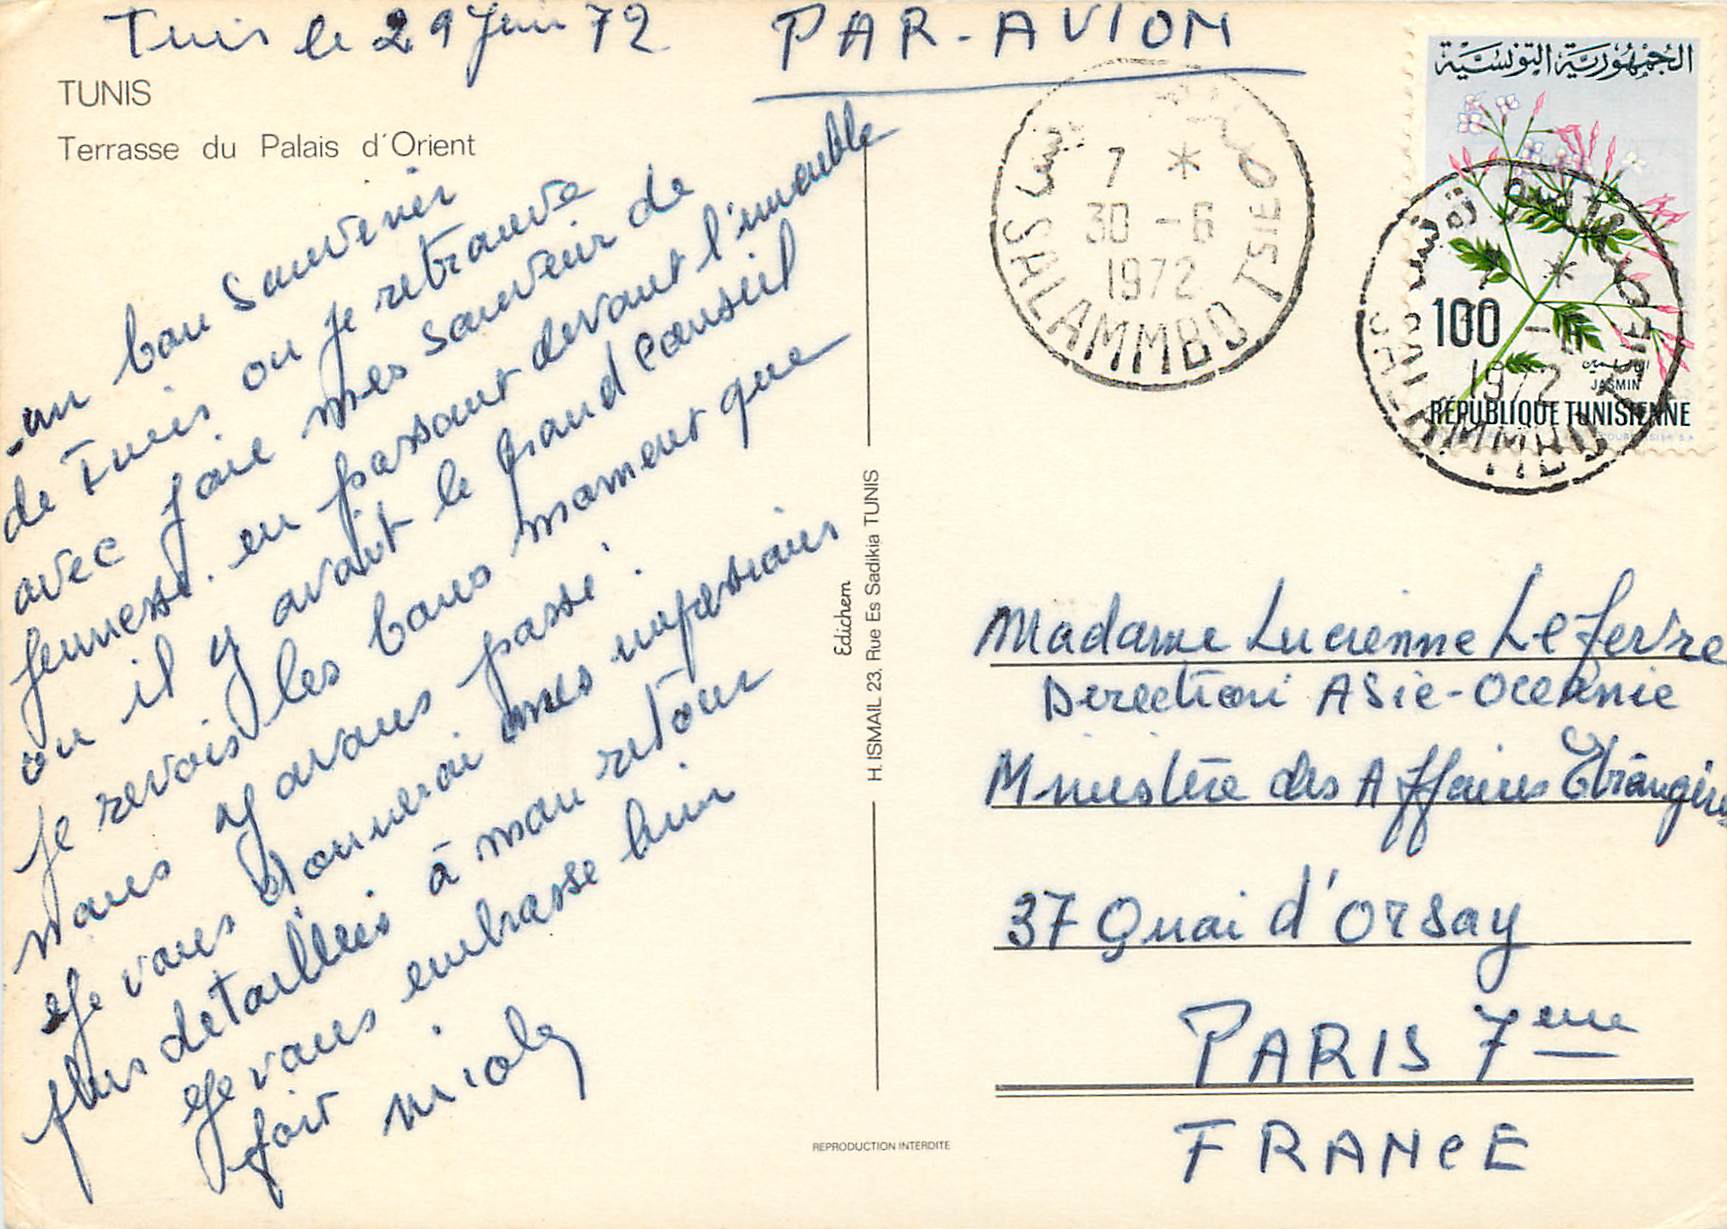 Tunis le 29 Juin 72
PAR-AVION
TUNIS
Terrasse du Palais d'Orient
un bon souvenir
de Tunis ou je retrouve
avec joie mes souvenir de
jeunesse. en passant devant l'immeuble
ou il y avait le grand conseil
je revois les bons moment que
nous y avons passé.
Je vous donnerai mes impressions
plus detaillées à mon retour
Je vous embrasse bien
fort Nicole
Edichem
H. ISMAIL 23, Rue Es Sadikia TUNIS
REPRODUCTION INTERDITE
7 *
30 - 6
1972
SALAMMBO TUNISIE
الجمهورية التونسية
100
الياسمين
JASMIN
RÉPUBLIQUE TUNISIENNE
1972
SALAMMBO
Madame Lucienne Lefevre
Direction Asie-Oceanie
Ministère des Affaires Etrangères
37 Quai d'Orsay
PARIS 7eme
FRANCE